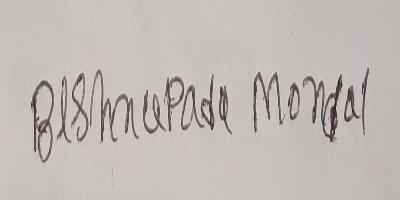 Bishnupada Mondal